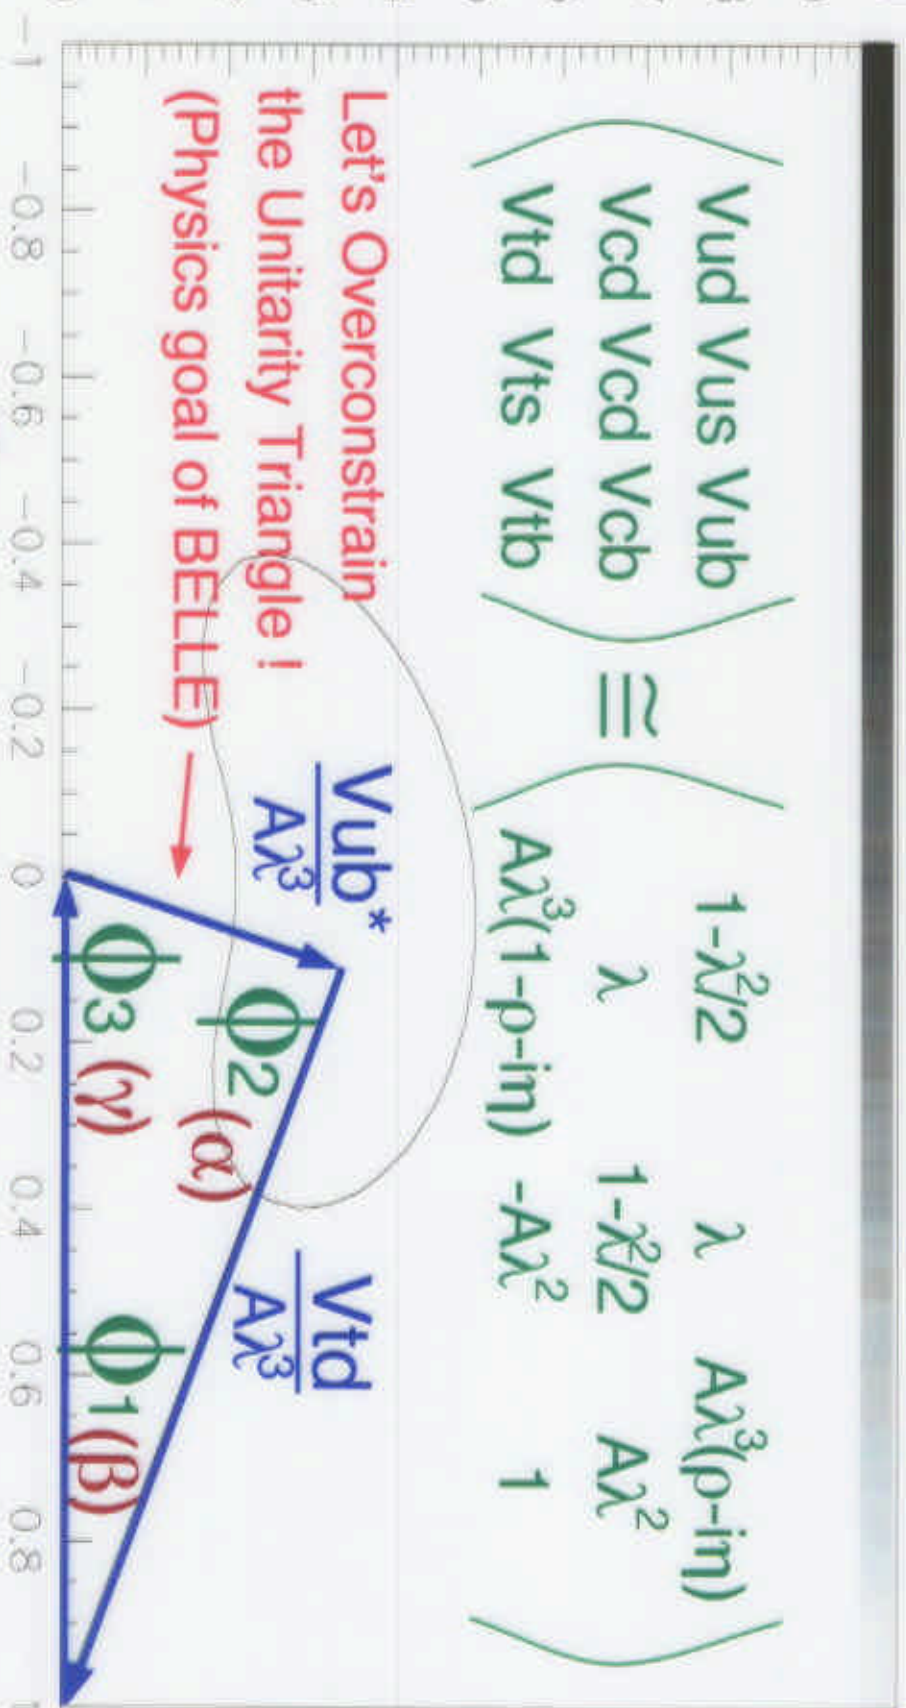 Vud Vus Vub
Vcd Vcd Vcb
Vtd Vts Vtb
≅
1-λ²/2 λ Aλ³(ρ-iη)
λ 1-λ²/2 Aλ²
Aλ³(1-ρ-iη) -Aλ² 1
Let's Overconstrain
the Unitarity Triangle !
(Physics goal of BELLE)
Vub*
Aλ³
Vtd
Aλ³
Φ2
(α)
Φ3 (γ)
Φ1(β)
-1 -0.8 -0.6 -0.4 -0.2 0 0.2 0.4 0.6 0.8